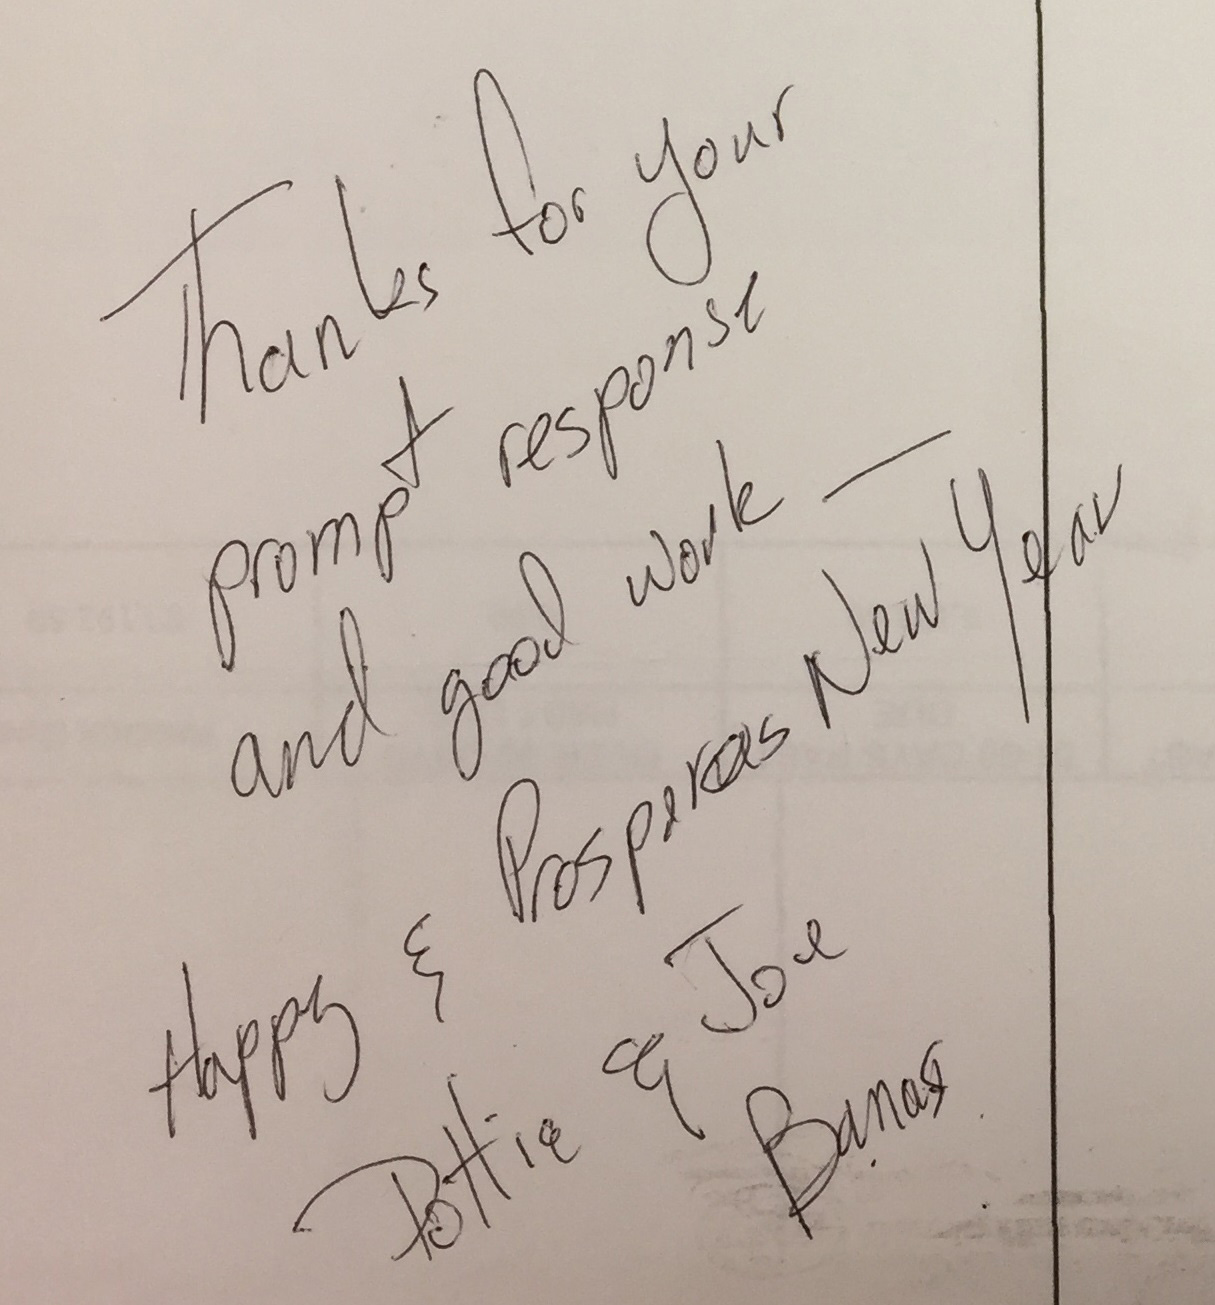 Thanks for your
prompt response
and good work —
Happy & Prosperous New Year
Dottie & Joe
Banas